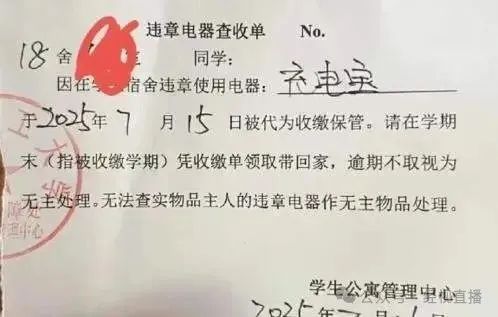 违章电器查收单 No.
18舍 同学：
因在学 宿舍违章使用电器：充电宝
于2025年7月15日被代为收缴保管。请在学期
末（指被收缴学期）凭收缴单领取带回家，逾期不取视为
无主处理。无法查实物品主人的违章电器作无主物品处理。
工大学
障处
管理中心
学生公寓管理中心
公众号
直播
2025年7月